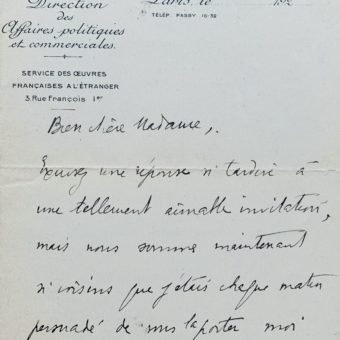 Direction
des
Affaires politiques
et commerciales.
Paris, le 192
TÉLÉP. PASSY 16-39
SERVICE DES ŒUVRES
FRANÇAISES A L'ÉTRANGER
3, Rue François 1er
Bien chère Madame,
Excusez une réponse si tardive à
une tellement aimable invitation,
mais nous sommes maintenant
si voisins que j'étais chaque matin
persuadé de vous la porter moi